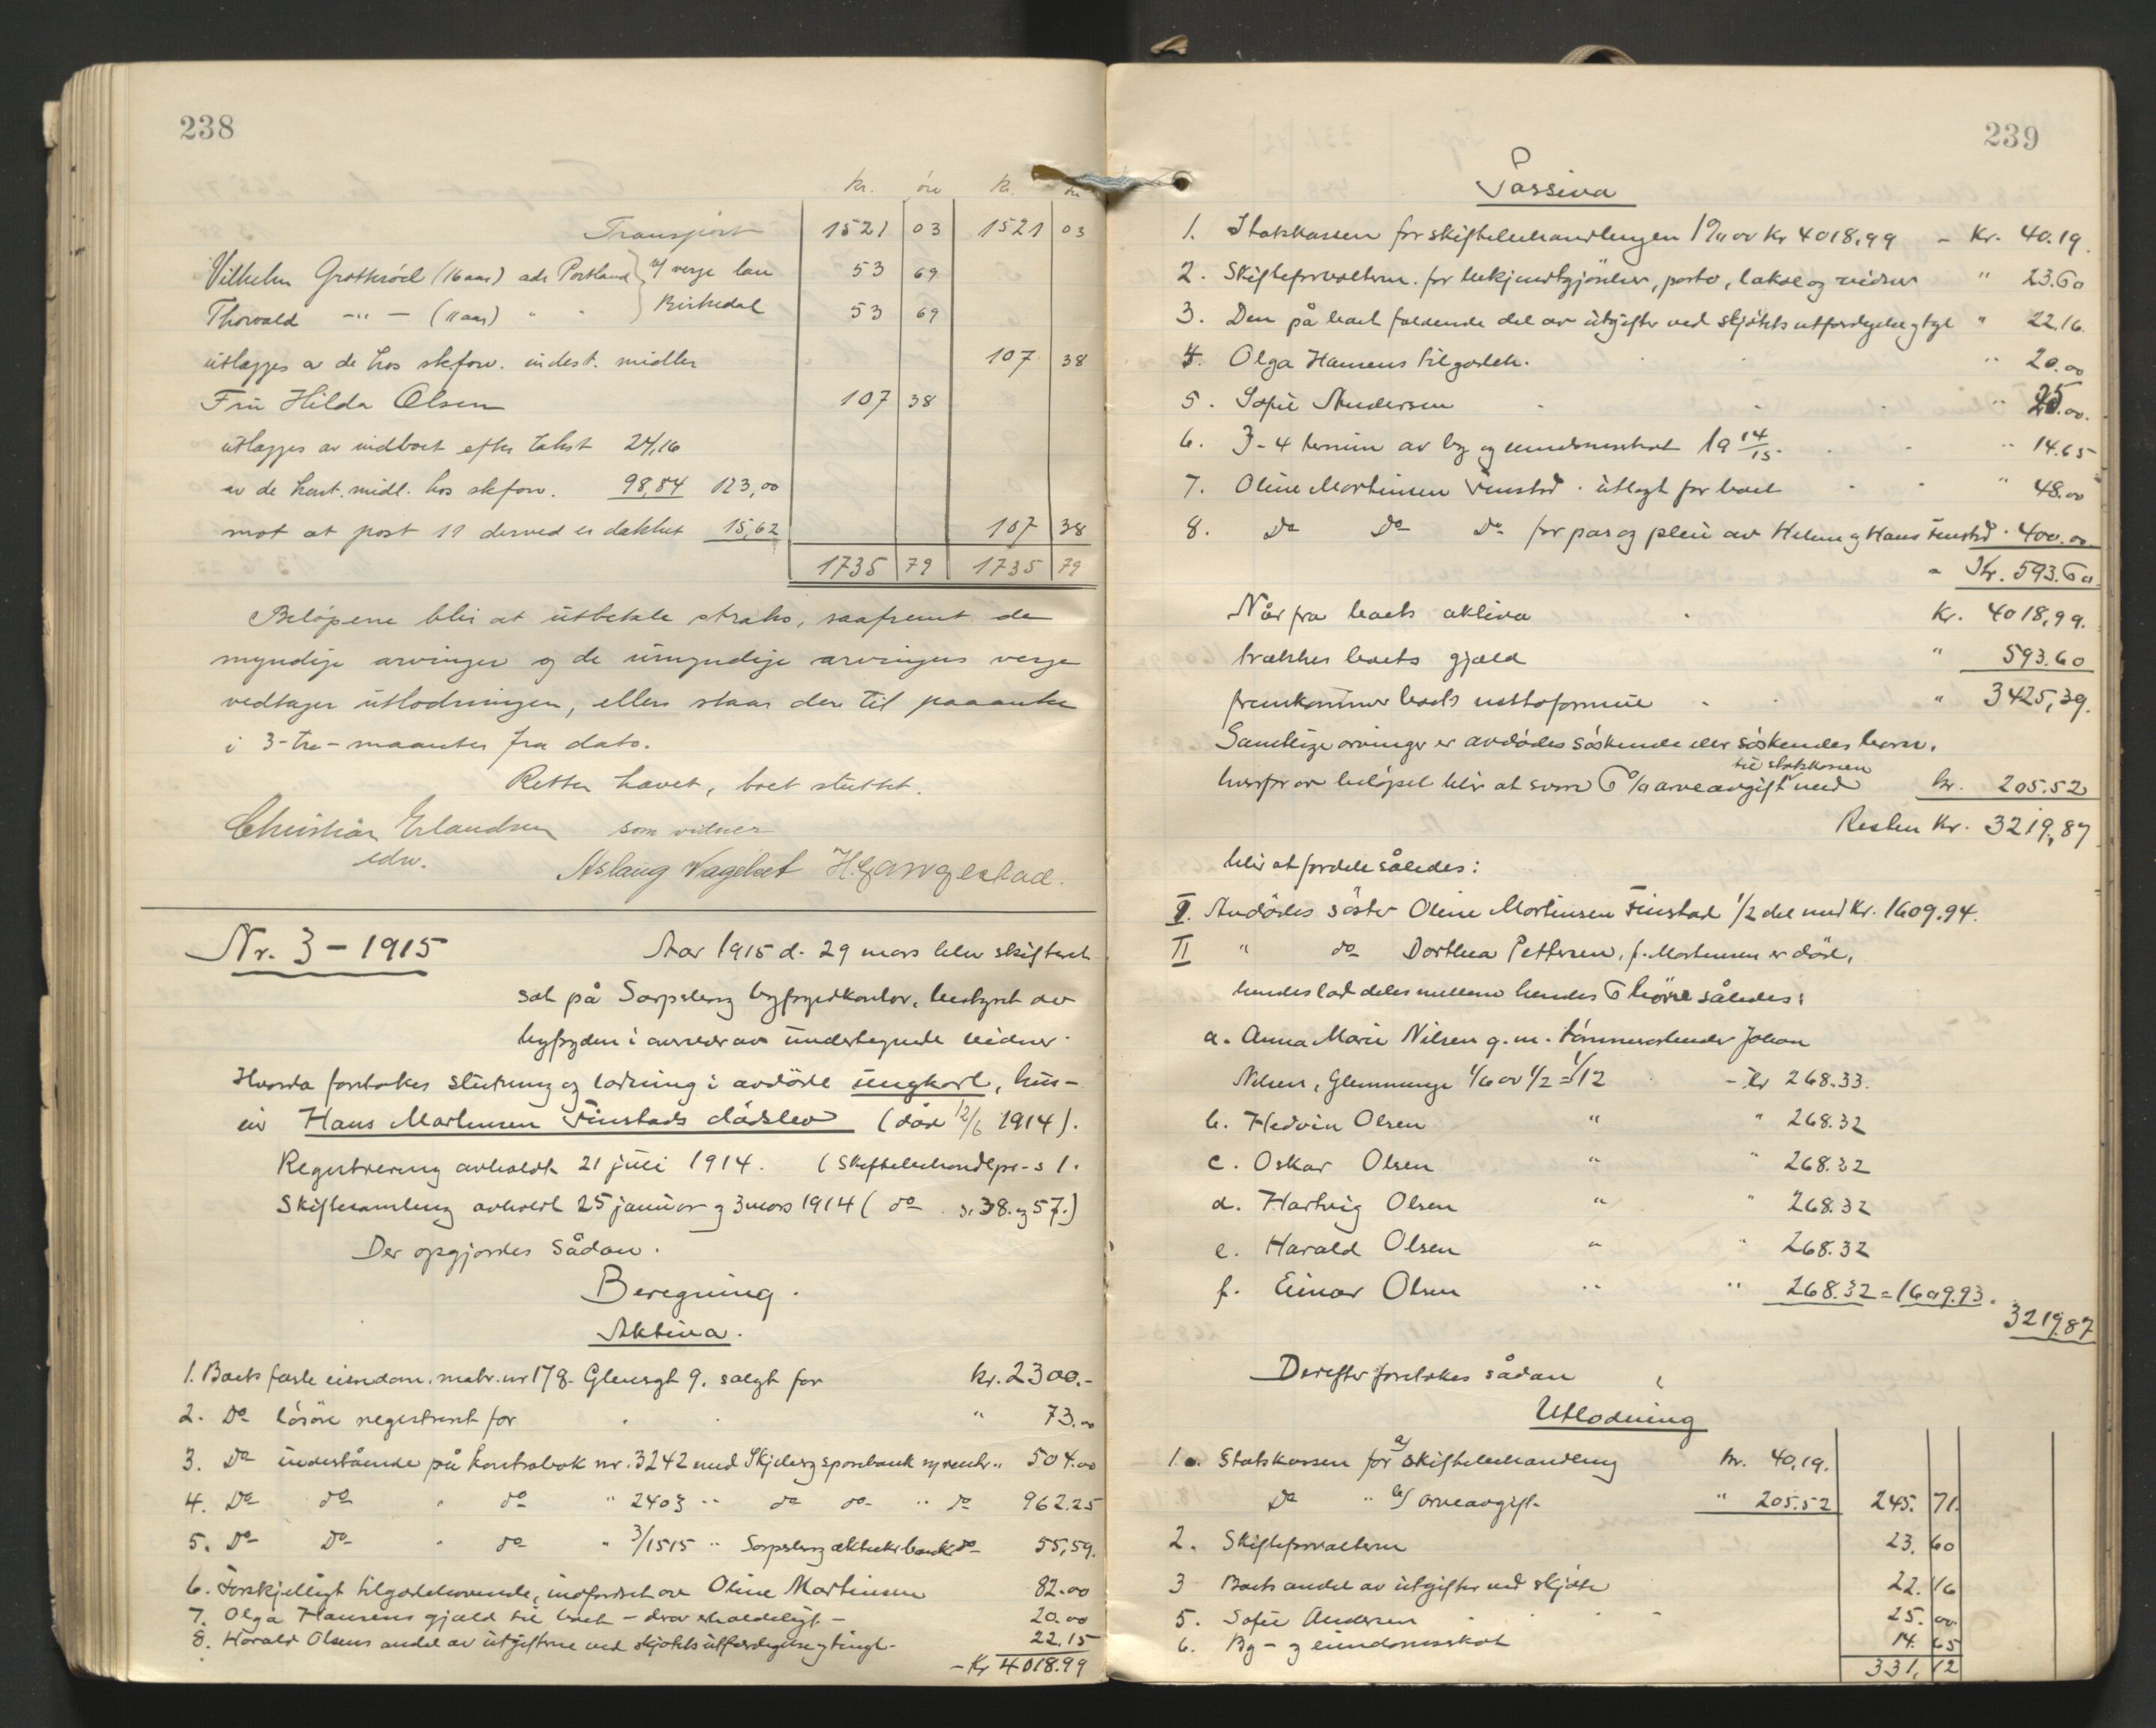 238
kr. øre kr. øre
Transport 1521 03 1521 03
Vilhelm Grøtterød (16 aar) adr Portland v/ verge lau 53 69
Thorvald -"- (11 aar) " " Birkedal 53 69
utlægges av de hos skforv. indest. midler 107 38
Fru Hilda Olsen 107 38
utlægges av indboet efter takst 24,16
av de kont. midl. hos skforv. 98,84 123,00
mot at post 11 derved er dækket 15,62 107 38
1735 79 1735 79
Beløpene blir at utbetale straks, saafremt de
myndige arvinger og de umyndige arvingers verge
vedtager utlodningen, ellers staar den til paaanke
i 3-tre-maaneter fra dato.
Retten hævet, boet sluttet.
Christian Erlandsen som vidner
edv.
Aslaug Vagelset H. Gangestad.
Nr. 3 - 1915 Aar 1915 d. 29 mars blev skifteret
sat på Sarpsborg byfogedkontor, bestyret av
byfogden i overvær av undertegnede vidner.
Hvorda foretokes slutning og lodning i avdöde ungkarl, hus-
eier Hans Martinsen Finstads dödsbo (död 12/6 1914).
Registrering avholdt 21 juli 1914. (Skiftebehandlpr. s 1.
Skiftesamling avholdt 25 januar og 3 mars 1914 ( do s. 38. og 57.)
Der opgjordes sådan.
Beregning.
Aktiva.
1. Boets faste eiendom. matr. nr 178. Glengt 9. solgt for kr. 2300.-
2. Do lösöre registreret for " 73.00
3. Do indestående på kontrabok nr. 3242 med Skjeberg sparebank og renter " 504.00
4. Do do " do " 2403 " do do " do 962.25
5. Do Do " do " 3/1515 " Sarpsborg aktiebank do 55,59.
6. Forskjelligt tilgodehavende, indfordret av Oline Martinsen 82.00
7. Olga Hansens gjæld til boet - derav erholdeligt - 20.00
8. Harald Olsens andel av utgifterne ved skjötets utfærdigelse og tingl. 22.15
- Kr 4018.99
239
Passiva
1. Statskassen for skiftebehandlingen 1% av Kr 4018,99 - Kr. 40.19.
2. Skifteforvalteren for bekjendtgjörelser, porto, lakse og vidner " 23.60
3. Den på boet faldende del av utgifter ved skjötets utfærdigelse og tgl " 22.16.
4. Olga Hansens tilgodeh. " 20.00
5. Sofie Andersen " 25.00.
6. 3-4 termin av by og eiendomsskat 19 14/15 " 14.65
7. Oline Martinsen Finstad utlagt for boet " 48.00
8. Do Do Do for pas og pleie av Helene og Hans Finstad 400.00
- Kr. 593.60
Når fra boets aktiva Kr. 4018,99.
trækkes boets gjæld " 593.60
fremkommer boets nettoformue " 3425,39.
Samtlige arvinger er avdödes söskende eller söskendes barn,
hvorfor av belöpet blir at svare 6% arveavgift til statskassen med kr. 205.52
Resten Kr. 3219.87
blir at fordele således:
I. Avdödes söster Oline Martinsen Finstad 1/2 del med Kr. 1609.94.
II " do Dorthea Pettersen, f. Martinsen er död,
hendes lod deles mellem hendes 6 börn således:
a. Anna Marie Nilsen g. m. tömmerarbeider Johan
Nilsen, Glemminge 1/6 av 1/2 = 1/12 - Kr 268.33.
b. Hedvin Olsen " " 268.32
c. Oskar Olsen " " 268.32
d. Hartvig Olsen " " 268.32
e. Harald Olsen " " 268.32
f. Einar Olsen " " 268.32 = 1609.93.
3219.87
Derefter foretokes sådan
Utlodning
1. Statskassen for a/ skiftebehandling kr. 40,19.
Do " b/ arveavgift " 205.52 245. 71.
2. Skifteforvalteren 23. 60
3 Boets andel av utgifter ved skjöte 22. 16
5. Sofie Andersen 25. 00.
6. By- og eiendomsskat 14. 65
331, 12